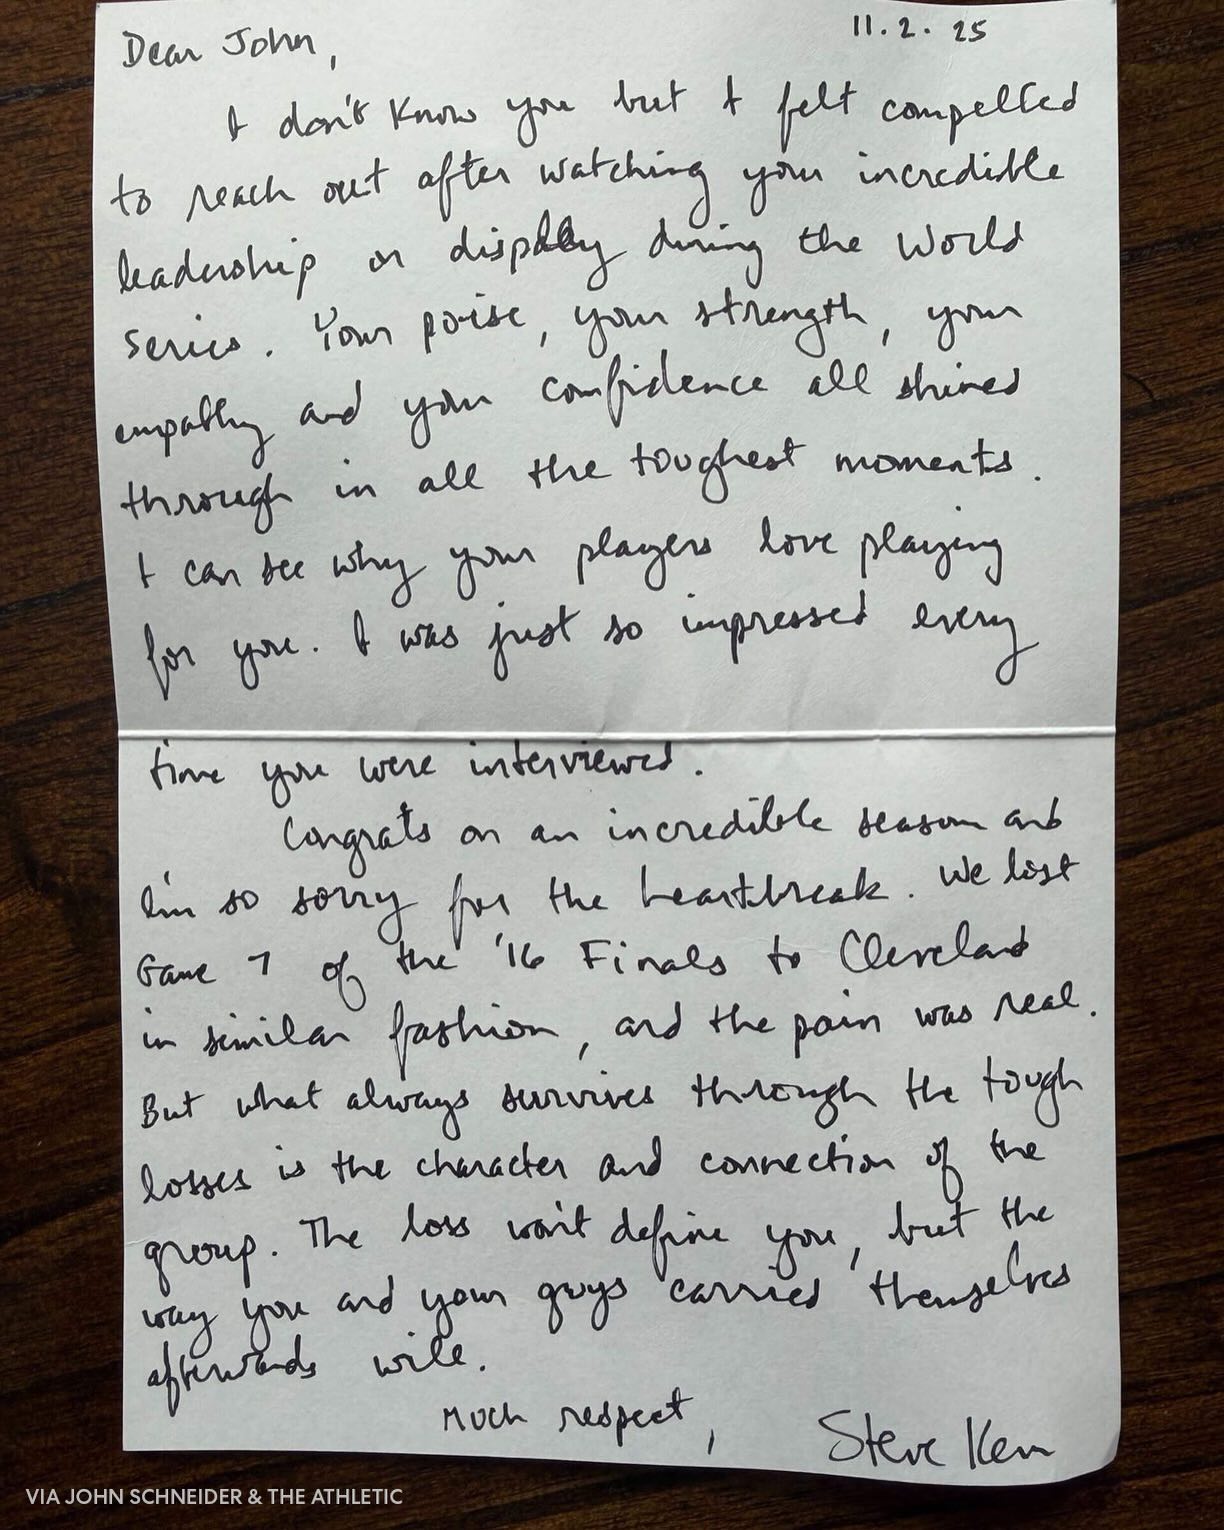 11.2.25
Dear John,
I don't know you but I felt compelled
to reach out after watching your incredible
leadership on display during the World
Series. Your poise, your strength, your
empathy and your confidence all shined
through in all the toughest moments.
I can see why your players love playing
for you. I was just so impressed every
time you were interviewed.
Congrats on an incredible season and
I'm so sorry for the heartbreak. We lost
Game 7 of the '16 Finals to Cleveland
in similar fashion, and the pain was real.
But what always survives through the tough
losses is the character and connection of the
group. The loss won't define you, but the
way you and your guys carried themselves
afterwards will.
Much respect,
Steve Kerr
VIA JOHN SCHNEIDER & THE ATHLETIC